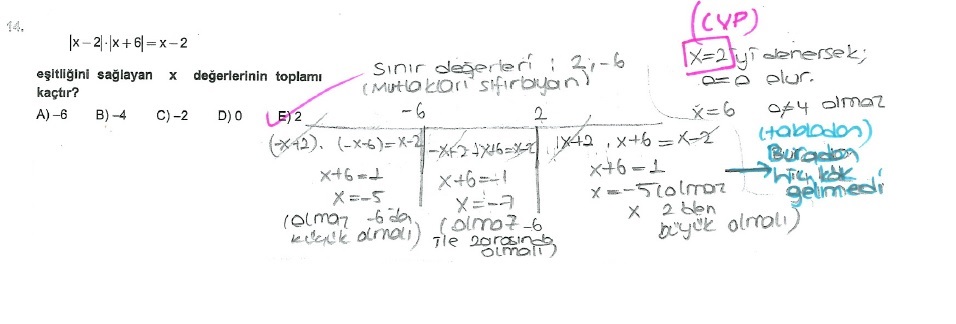 14.
|x-2|·|x+6|=x-2
eşitliğini sağlayan x değerlerinin toplamı
kaçtır?
A) -6 B) -4 C) -2 D) 0 E) 2
Sınır değerleri : 2, -6
(Mutlakları sıfırlayan)
(ÇYP)
x=2 yi denersek;
0=0 olur.
x=6 0≠4 olmaz
(tablodan)
Buradan
hiç kök
gelmedi
-6 2
(-x+2). (-x-6)=x-2
x+6=1
x=-5
(olmaz -6'dan
küçük olmalı)
-x+2.+x+6=x-2
x+6=-1
x=-7
(olmaz -6
ile 2 arasında
olmalı)
x+2 . x+6 = x-2
x+6=1
x=-5(olmaz
x 2 den
büyük olmalı)